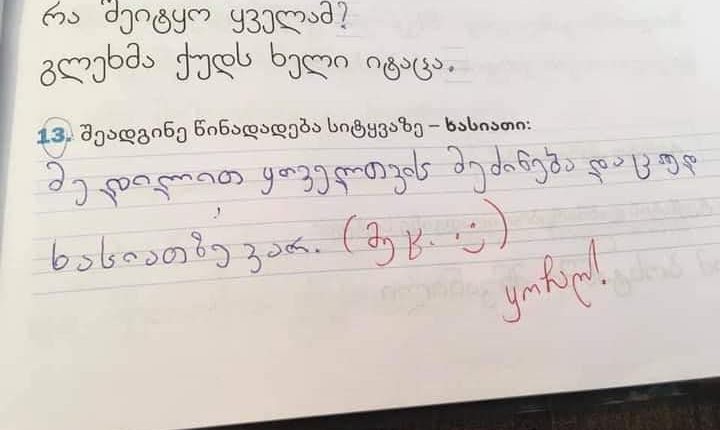 რა შეიტყო ყველამ?
გლეხმა ქუდს ხელი იტაცა.
13. შეადგინე წინადადება სიტყვაზე – ხასიათი:
მე დილით ყოველთვის მეძინება და ცუდ
ხასიათზე ვარ. (მეც. :))
ყოჩაღ!